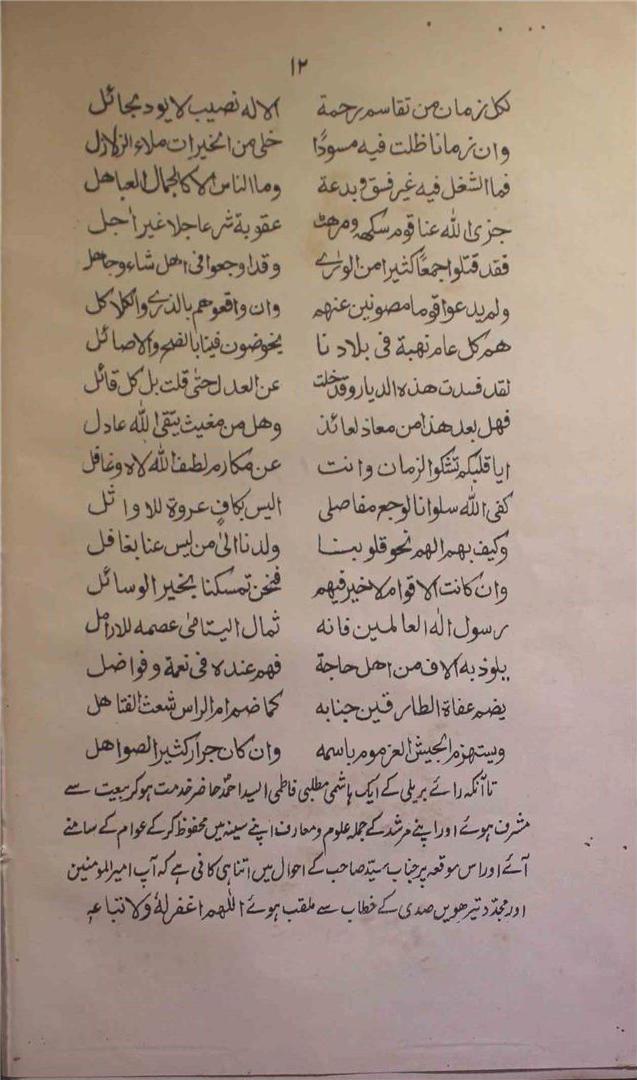 ١٢
لكل زمان من تقاسم رحمة الاله نصيب لايود بجائل
وان زماناظلت فيه مسودًا خلى من الخيرات ملاء الزلازل
فما الشغل فيه غير فسق وبدعة وما الناس الاكالجمال العباهل
جزى الله عنا قوم سكھ ومرهٹ عقوبة شر عاجلا غير اجل
فقد قتلوا جمعًا كثيرا من الورى وقد اوجعوا فى اهل شاء وجاهل
ولم يدعوا قوما مصونين عنهم وان واقعوهم بالذرى والكلاكل
هم كل عام نهبة فى بلادنا يخوضون فينا بالضحى والاصائل
لقد فسدت هذه الديار وقد خلت عن العدل حتى قلت بل كل قائل
فهل بعد هذا من معاذ لعائذ وهل من مغيث يتقى الله عادل
ايا قلبكم تشكو الزمان وانت عن مكارم لطف الله لاه وغافل
كفى الله سلوانا لوجع مفاصلى اليس بكاف عروة للاوائل
وكيف بهم الهم نحو قلوبنا ولدنا الى من ليس عنا بغافل
وان كانت الاقوام لاخير فيهم فنحن تمسكنا بخير الوسائل
رسول اله العالمين فانه ثمال اليتامى عصمه للارامل
يلوذ به الاف من اهل حاجة فهم عنده فى نعمة وفواضل
يضم عفاة الطارقين جنابه كما ضم ام الراس شعث القتاهل
ويستهزم الجيش العزموم باسمه وان كان جرار كثير الصواهل
تا آنکہ رائے بریلی کے ایک ہاشمی مطلبی فاطمی السید احمدؒ حاضر خدمت ہو کر بیعت سے
مشرف ہوئے اور اپنے مرشد کے جملہ علوم و معارف اپنے سینہ میں محفوظ کر کے عوام کے سامنے
آئے اور اس موقعہ پر جناب سید صاحب کے احوال میں اتنا ہی کافی ہے کہ آپ امیر المومنین
اور مجدد تیرھویں صدی کے خطاب سے ملقب ہوئے اللهم اغفر له ولاتباعه